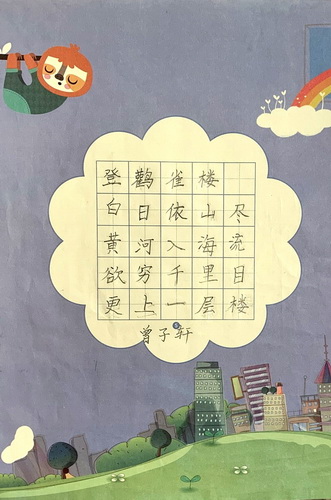 登鹳雀楼
白日依山尽
黄河入海流
欲穷千里目
更上一层楼
曾子轩